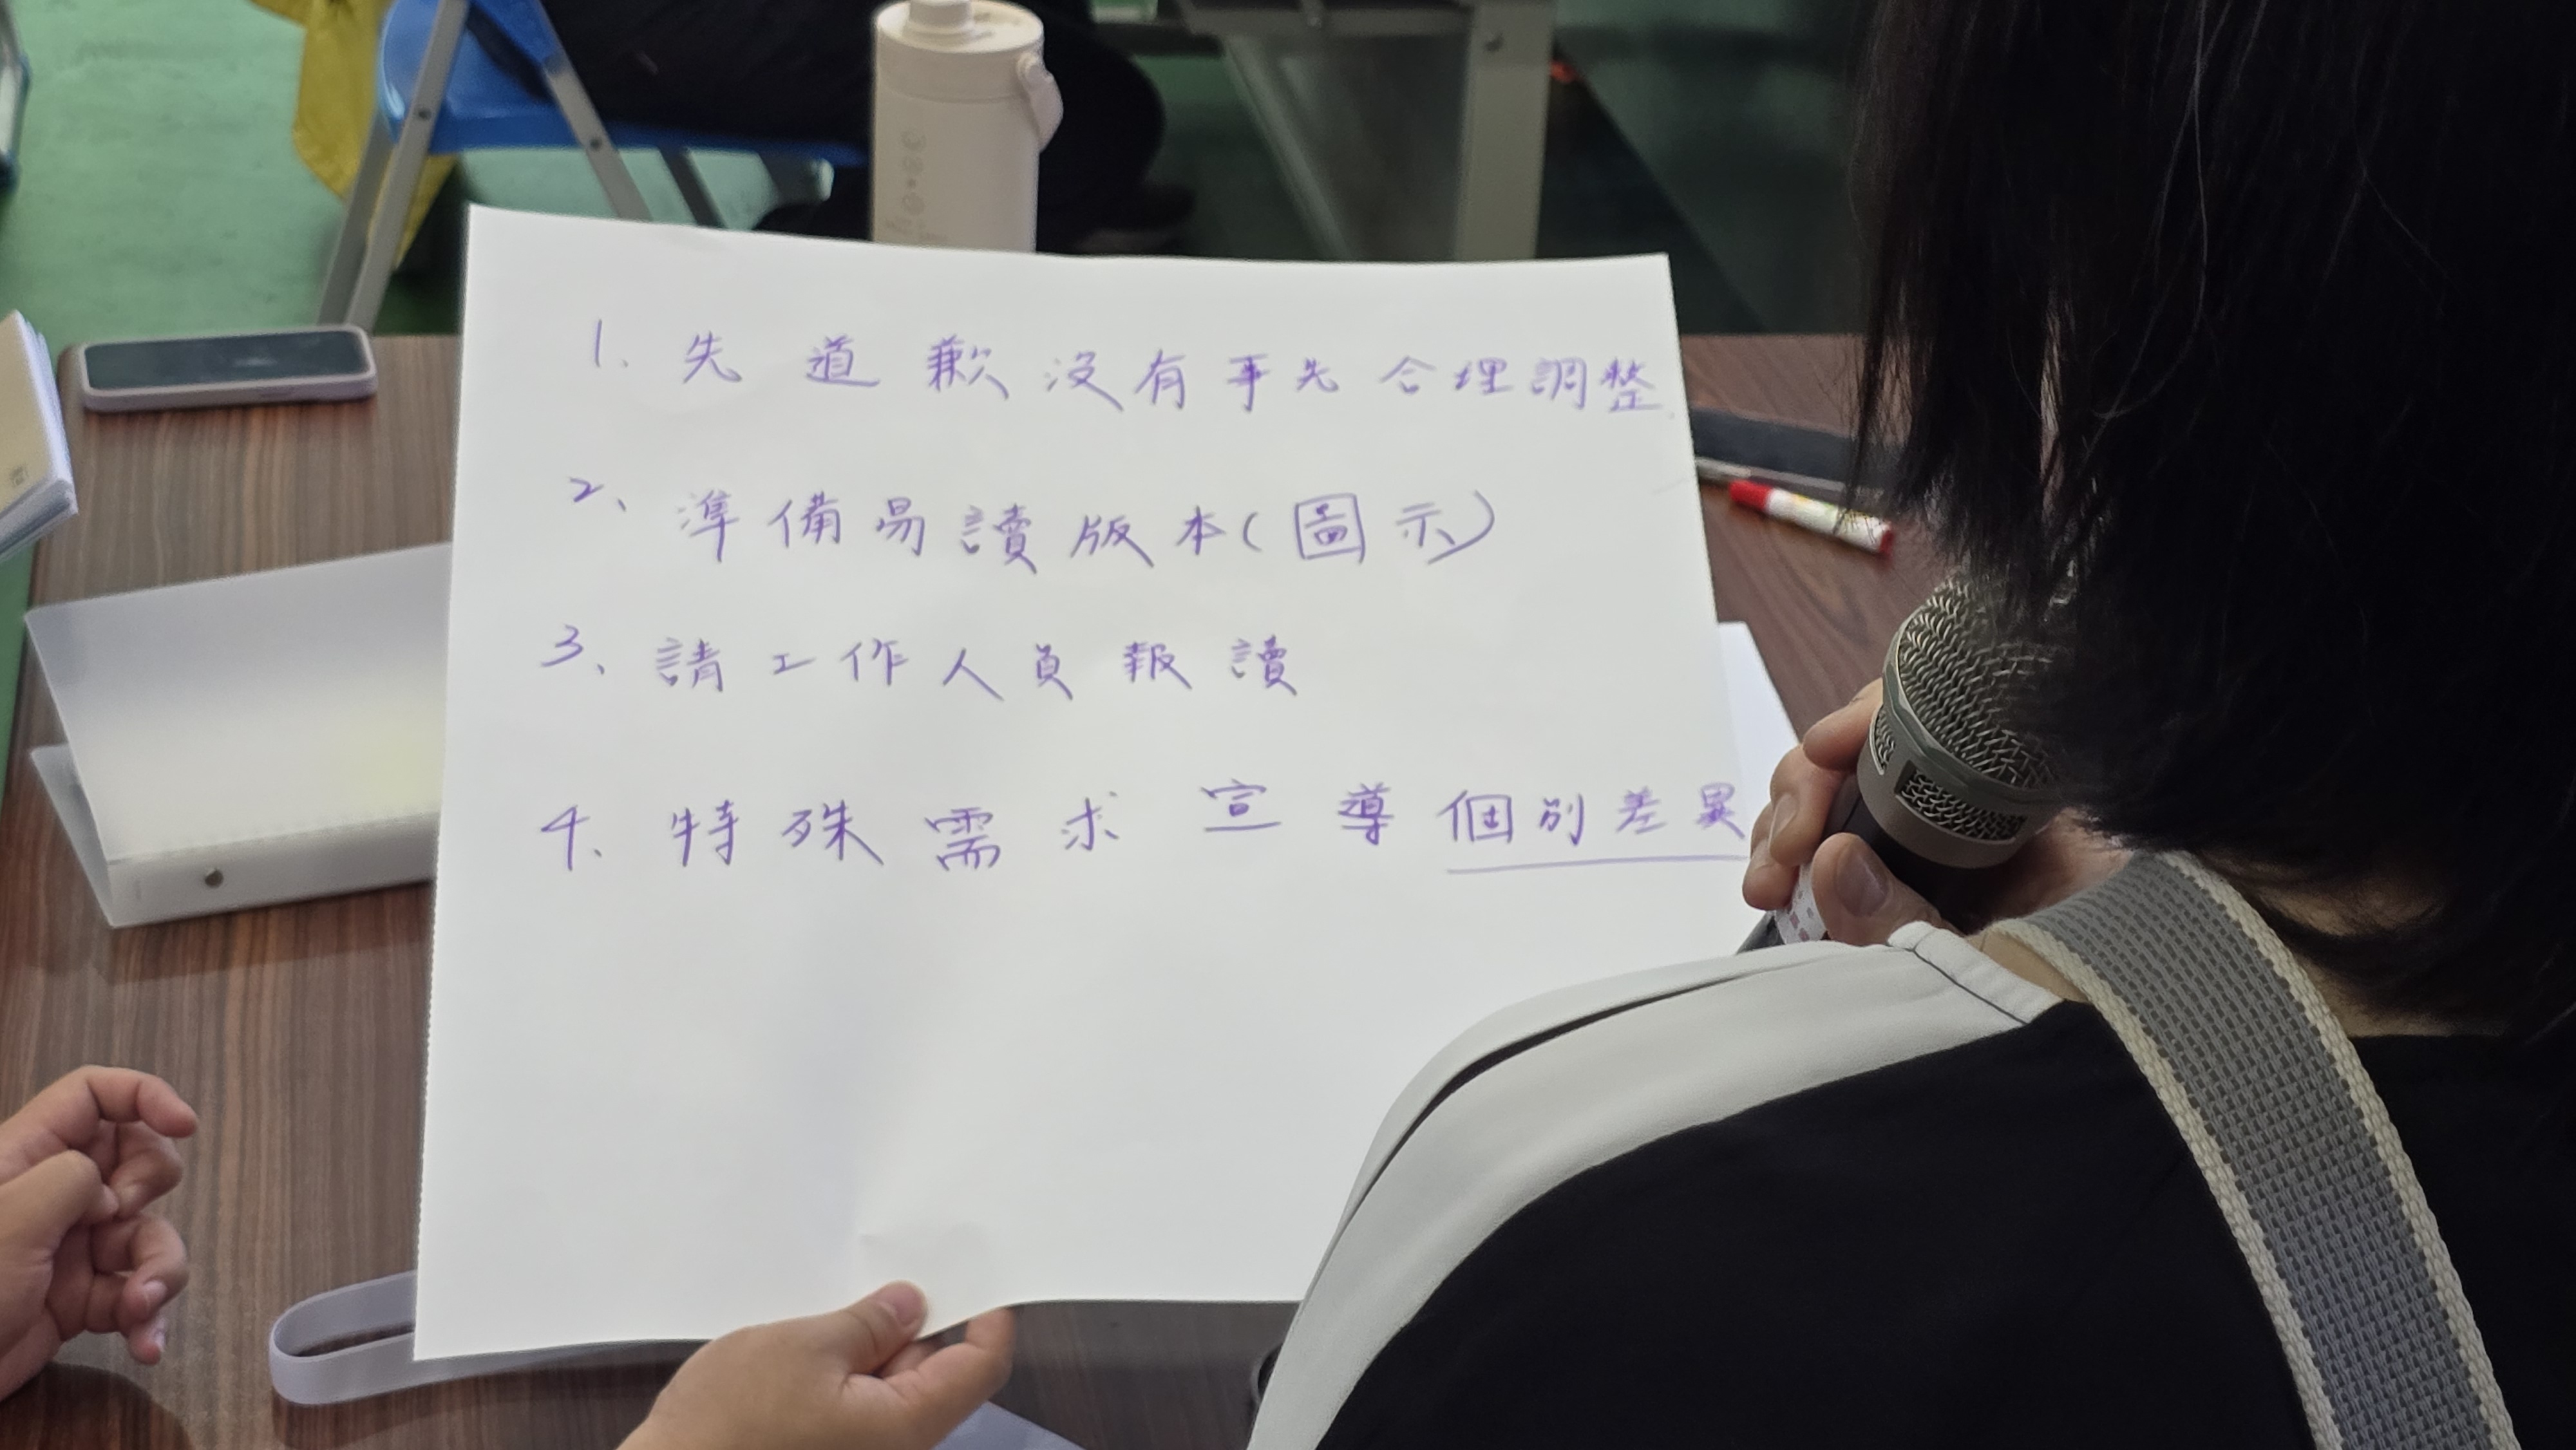 1. 先道歉沒有事先合理調整
2、準備易讀版本(圖示)
3、請工作人員報讀
4、特殊需求宣導個別差異